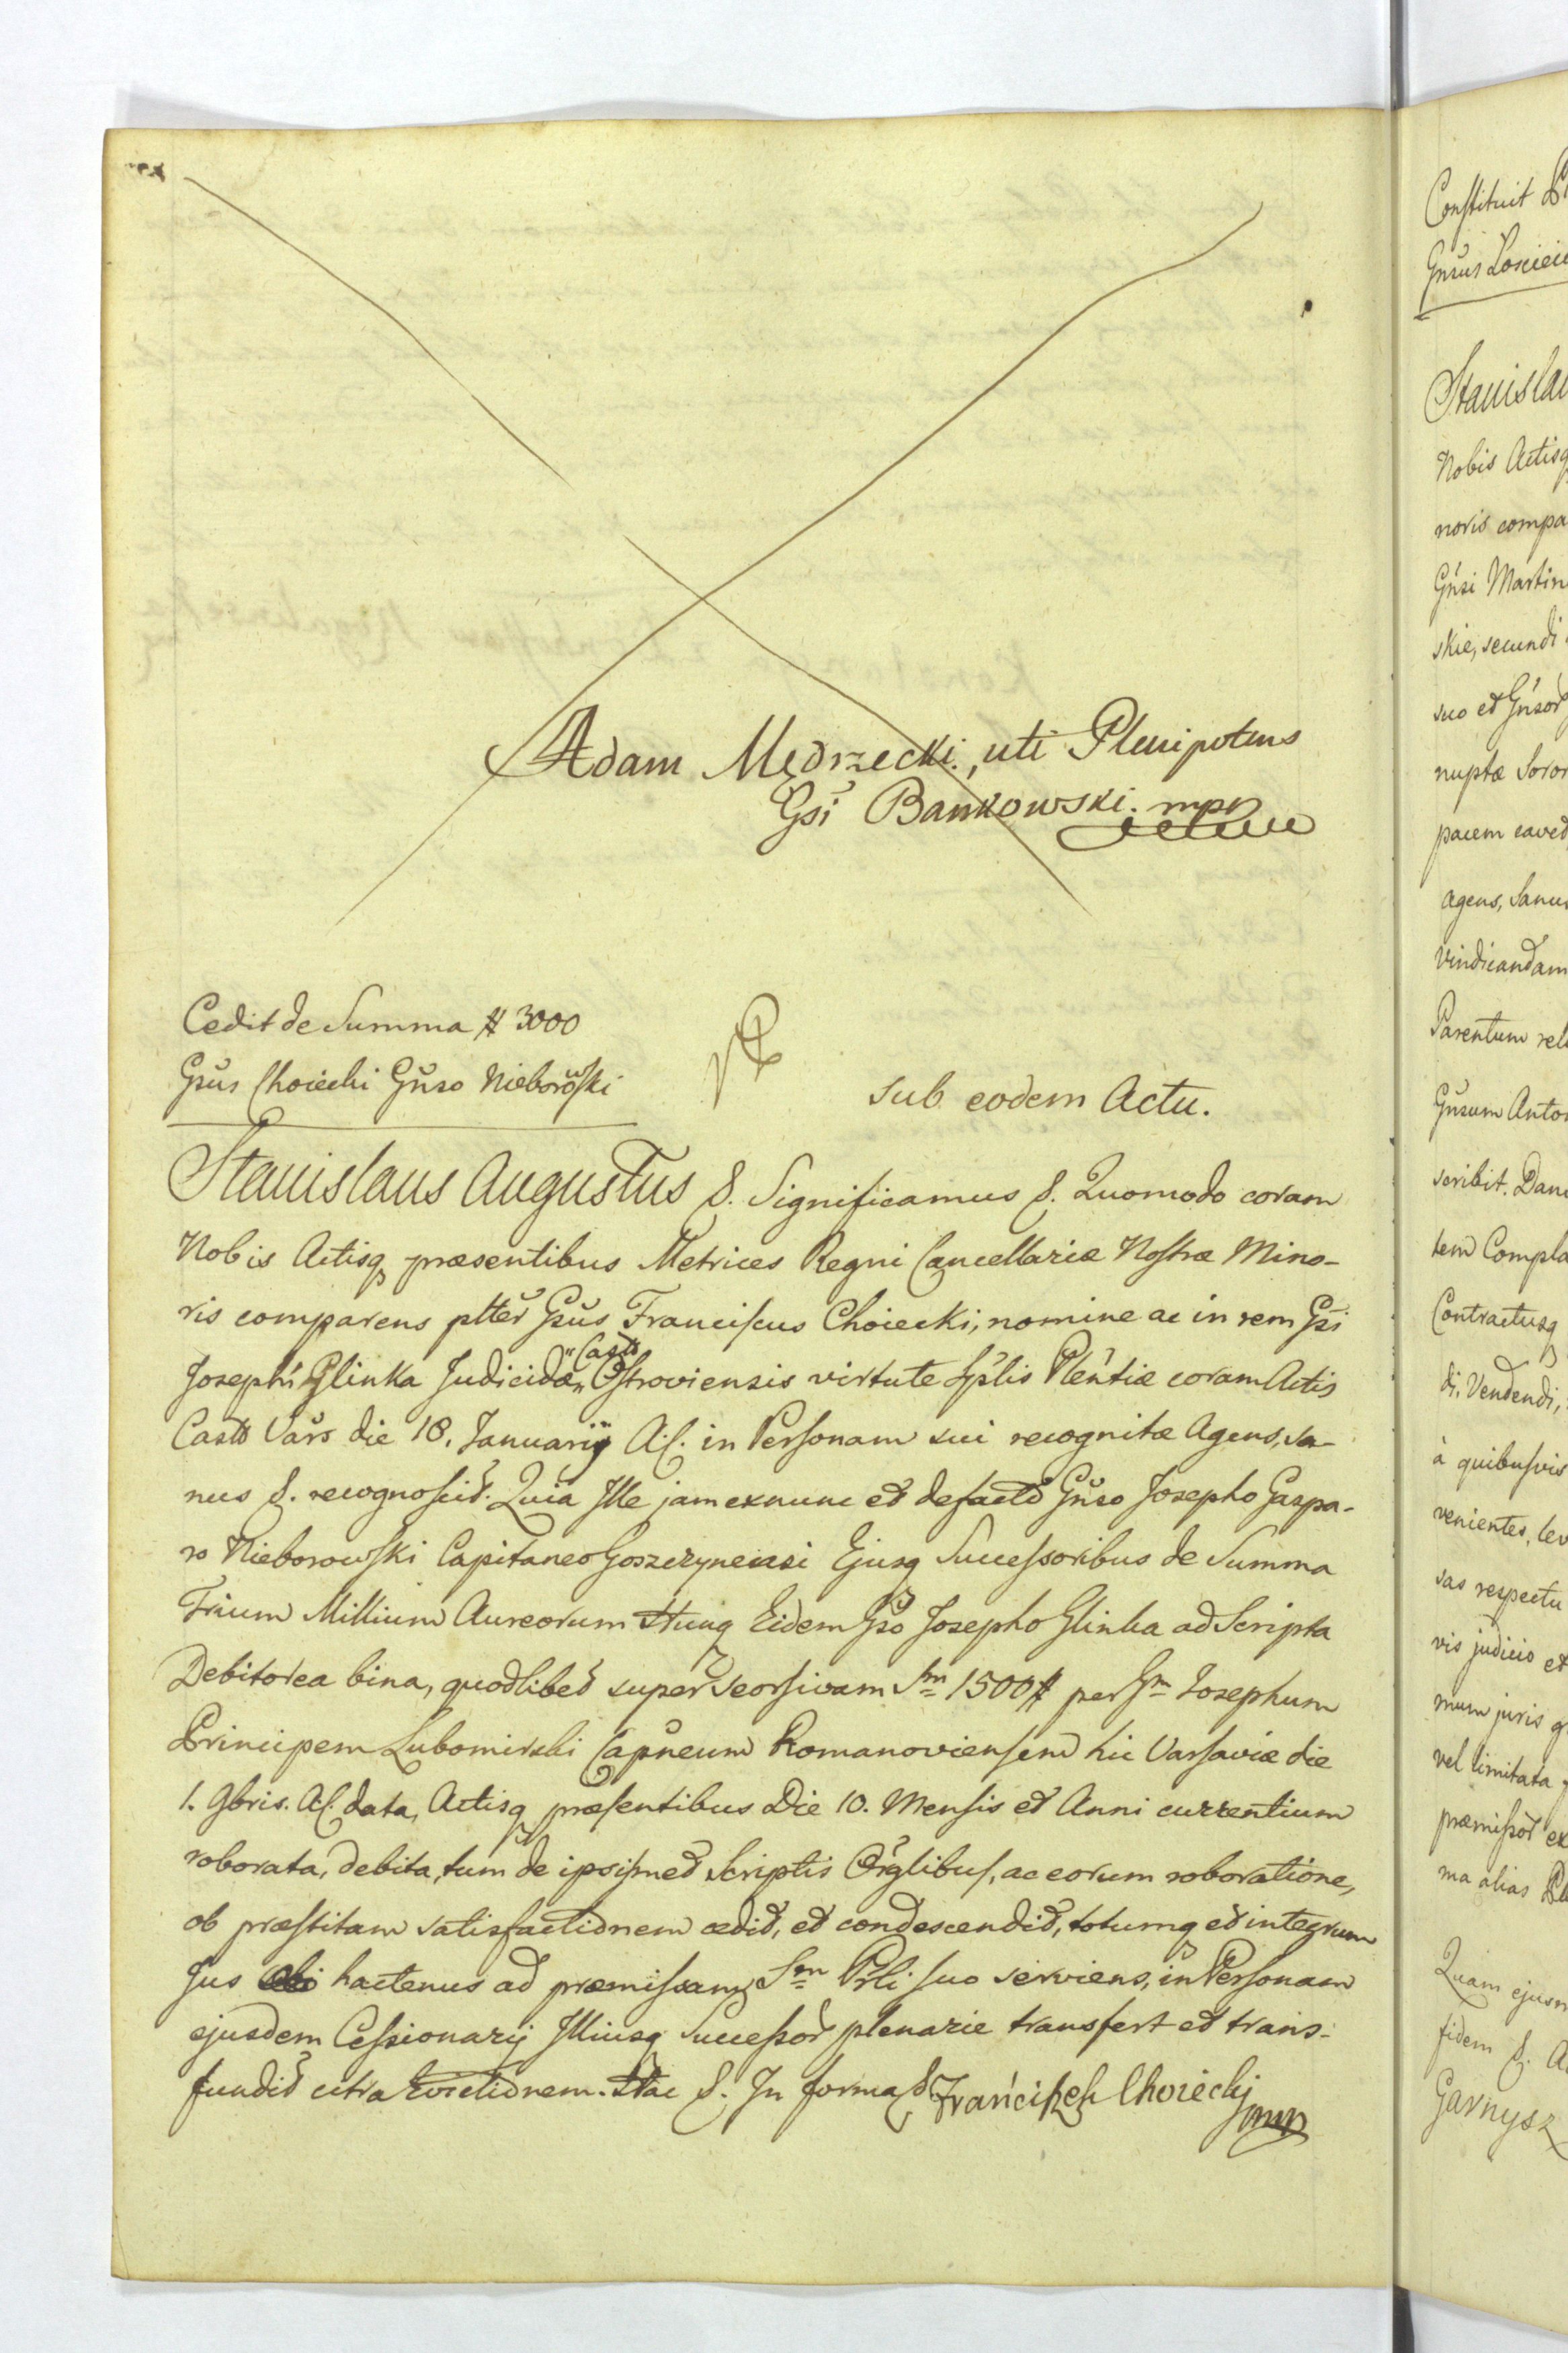 Adam Mędrzecki, uti Plenipotens
Gsi Bankowski. mpr
Cedit de Summa # 3000
Gsus Choiecki Gnso Nieborowski
Sub eodem Actu.
Stanislaus Augustus &. Significamus &. Quomodo coram
Nobis Actisq præsentibus Metrices Regni Cancellariæ Nostræ Mino-
ris comparens pltter Gsus Franciscus Choiecki, nomine ac in rem Gsi
Josephi Glinka Judicidæ Castr Ostroviensis virtute Splis Plentiæ coram Actis
Castr Vars die 18. Januarij A. C. in Personam sui recognitæ Agens, sa-
nus &. recognoscit. Quia Ille jam exnunc et defacto Gnso Josepho Gaspa-
ro Nieborowski Capitaneo Goszczynensi Ejusq Successoribus de Summa
Trium Millium Aureorum Hung Eidem Gso Josepho Glinka ad Scripta
Debitorea bina, quodlibet super seorsivam Sm 1500 # per Gm Josephum
Principem Lubomirski Capneum Romanoviensem hic Varsaviæ die
1. 9bris. A. C. data, Actisq præsentibus Die 10. Mensis et Anni currentium
roborata, debita, tum de ipsismet Scriptis Orglibus, ac eorum roboratione,
ob præstitam satisfactionem cedit, et condescendit, totumq et integrum
Jus hactenus ad præmissam Sm Prli suo serviens, in Personam
ejusdem Cessionarij Illiusq Successor plenarie transfert et trans-
fundit citra Evictionem. Hac &. In forma &. Franciszek Choiecki mpr
Constituit
Gnsus
Stanislau
Nobis Actisq
noris compa
Gnsi Martin
skie, secundi
suo et Gnsor
nuptæ Soror
pacem caved
agens, Sanus
Vindicandam
Parentum rel
Gnsum Anton
scribit. Dan
tem Compla
Contractusq
di, Vendendi,
à quibusvis
venientes, lev
sas respectu
vis judicio et
mum juris q
vel limitata
præmissor ex
ma alias
Quam ejusm
fidem &. A
Garnysz